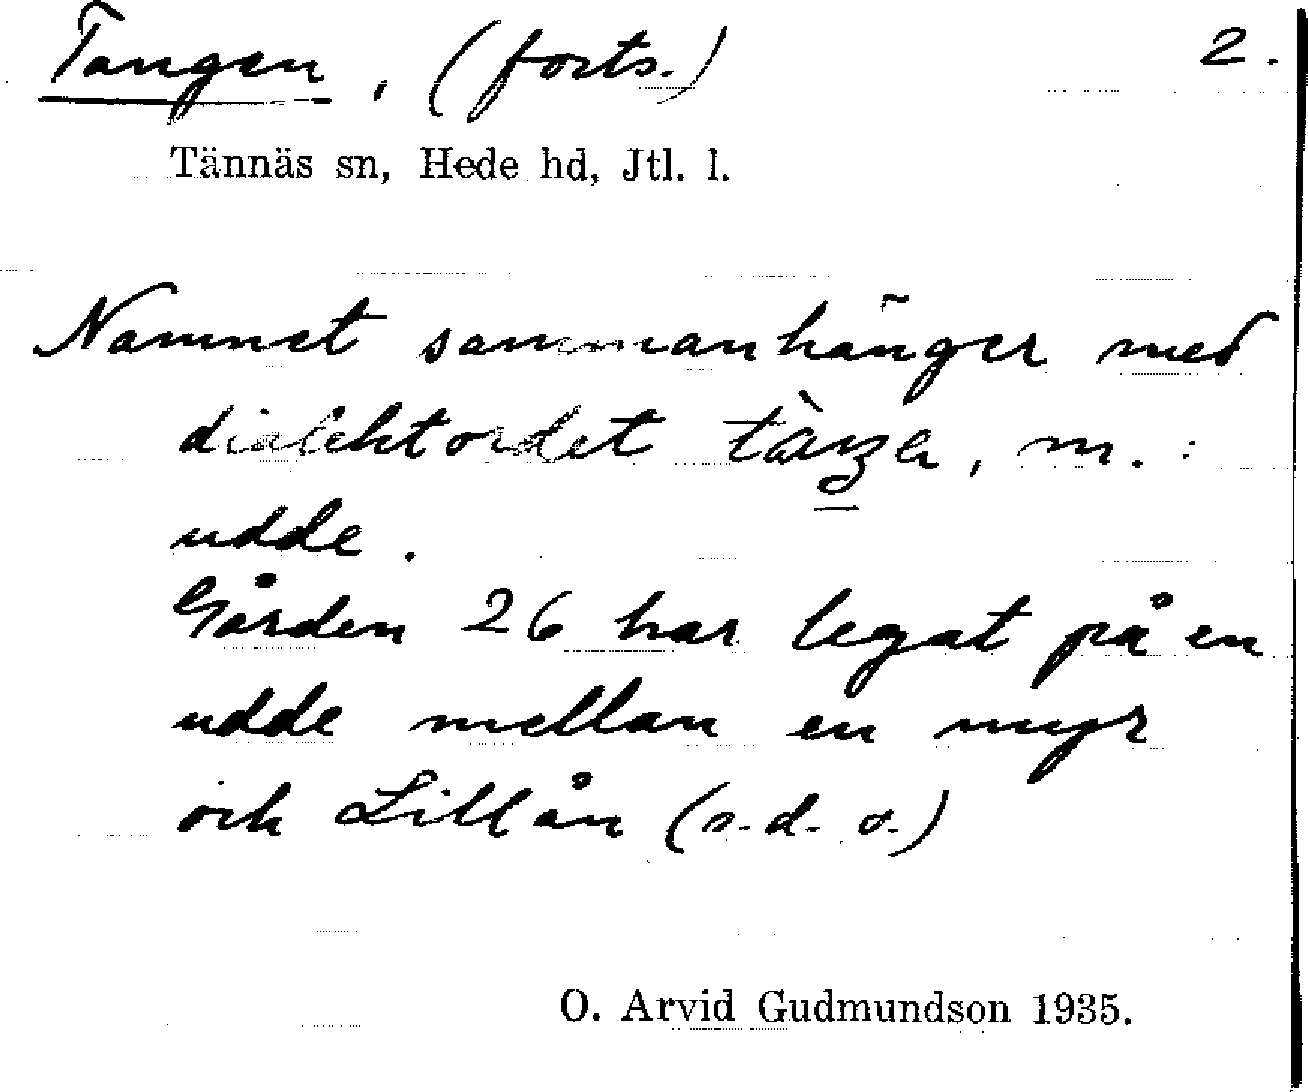 Tangen, (forts.) 2.
Tännäs sn, Hede hd, Jtl. l.
Namnet sammanhänger med
dialektordet , m. :
udde.
Gården 26 har legat på en
udde mellan en myr
och Lillån (s.d.o.)
O. Arvid Gudmundson 1935.